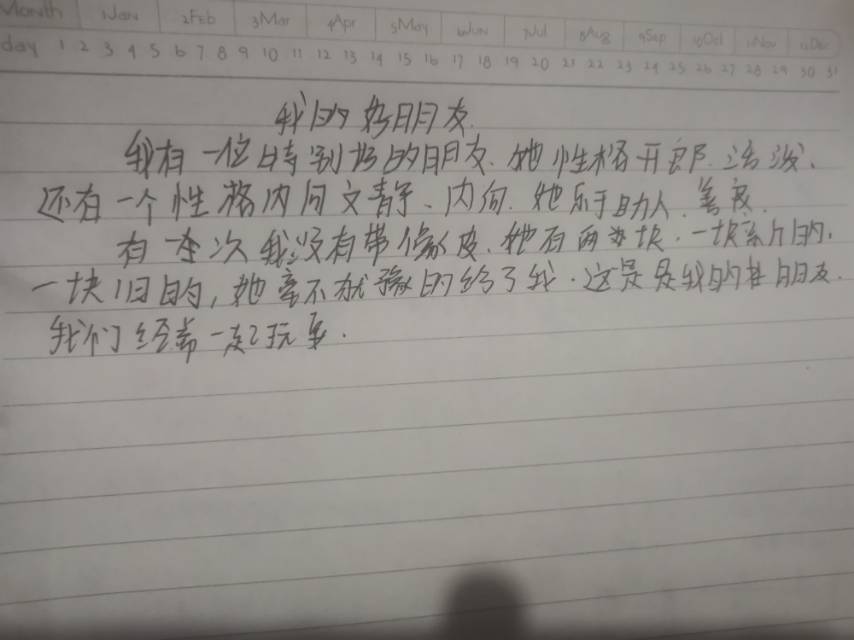 Month 1Jan 2Feb 3Mar 4Apr 5May 6Jun 7Jul 8Aug 9Sep 10Oct 11Nov 12Dec
day 1 2 3 4 5 6 7 8 9 10 11 12 13 14 15 16 17 18 19 20 21 22 23 24 25 26 27 28 29 30 31
我的好朋友
我有一位特别好的朋友.她性格开朗.活泼、
还有一个性格内向文静、内向.她乐于助人.善良.
有一次我没有带橡皮.她有两块.一块新的.
一块旧的,她毫不犹豫的给了我.这是是我的其朋友.
我们经常一起玩耍.